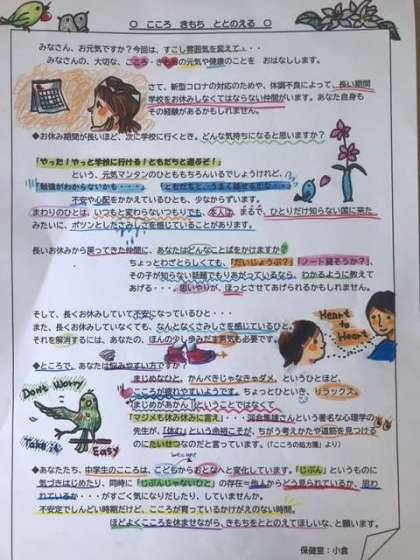 ○ こころ きもち ととのえる ○
みなさん、お元気ですか？今回は、すこし雰囲気を変えて・・・
みなさんの、大切な、こころ・きもちの元気や健康のことを おはなしします。
さて、新型コロナの対応のためや、体調不良によって、長い期間
学校をお休みしなくてはならない仲間がいます。あなた自身も
その経験があるかもしれません。
◆お休み期間が長いほど、次に学校に行くとき、どんな気持ちになると思いますか？
「やった！やっと学校に行ける！ともだちと遊ぶぞ！」
という、元気マンタンのひとももちろんいるでしょうけれど、
「勉強がわからないかも・・・」「ともだちと、うまく話せるかな・・」
不安や心配をかかえているひとも、少なからずいます。
まわりのひとは、いつもと変わらないつもりでも、本人は、まるで、ひとりだけ知らない国に来た
みたいに、ポツンとしたさみしさを感じていることがあります。
長いお休みから戻ってきた仲間に、あなたはどんなことばをかけますか？
ちょっとわざとらしくても、「だいじょうぶ？」「ノート貸そうか？」
その子が知らない話題でもりあがっているなら、わかるように教えて
あげる・・・思いやりが、ほっとさせてあげられるかもしれません。
そして、長くお休みしていて不安になっているひと・・・
また、長くお休みしていなくても、なんとなくさみしさを感じているひと。
それを解消するには、あなたの、ほんの少し歩みだす勇気も必要です。
Heart to Heart
◆ところで、あなたは悩みやすい方ですか？
まじめなひと、かんぺきじゃなきゃダメ、というひとほど、
こころが疲れやすいようです。ちょっとひといき、リラックス。
「まじめがあかん」ということではなくて、
「マジメも休み休みに言え」・・・河合隼雄さんという著名な心理学の
先生が、「休む」という余裕こそが、ちがう考えかたや道筋を見つける
のにたいせつなのだと言っています。（「こころの処方箋」より）
Don't Worry
Take it Easy
◆あなたたち、中学生のこころは、こどもからおとなへと変化しています。「じぶん」というものに
気づきはじめたり、同時に「じぶんじゃないひと」の存在＝他人からどう見られているか、思わ
れているか・・・・がすごく気になりだしたり、していませんか。
不安定でしんどい時期だけど、こころが育っているかけがえのない時間。
ほどよくこころを休ませながら、きもちをととのえてほしいな、と願います。
保健室：小倉